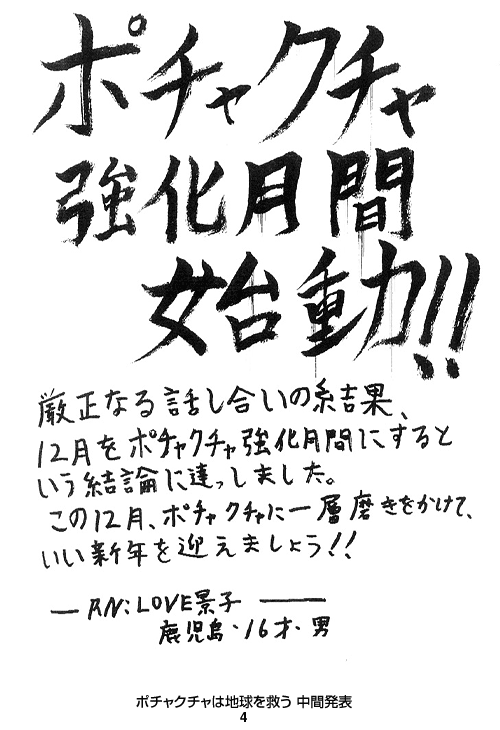 ポチャクチャ
強化月間
始動!!
厳正なる話し合いの結果、
12月をポチャクチャ強化月間にすると
いう結論に達っしました。
この12月、ポチャクチャに一層磨きをかけて、
いい新年を迎えましょう!!
― RN:LOVE景子 ―
鹿児島・16才・男
ポチャクチャは地球を救う 中間発表
4